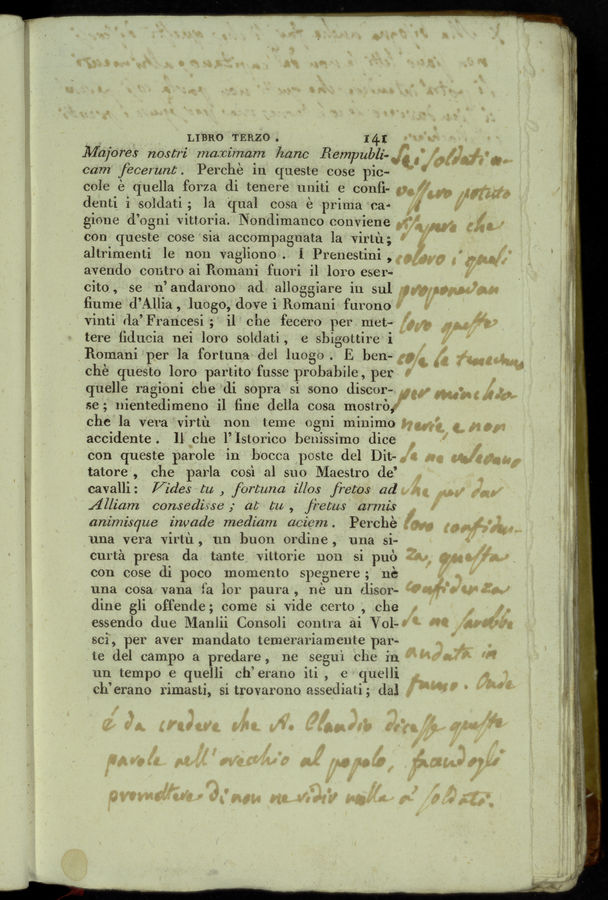 LIBRO TERZO . 141
Majores nostri maximam hanc Rempubli-
cam fecerunt . Perchè in queste cose pic-
cole è quella forza di tenere uniti e confi-
denti i soldati ; la qual cosa è prima ca-
gione d'ogni vittoria. Nondimanco conviene
con queste cose sia accompagnata la virtù;
altrimenti le non vagliono . I Prenestini ,
avendo contro ai Romani fuori il loro eser-
cito , se n'andarono ad alloggiare in sul
fiume d'Allia , luogo, dove i Romani furono
vinti da' Francesi ; il che fecero per met-
tere fiducia nei loro soldati , e sbigottire i
Romani per la fortuna del luogo . E ben-
chè questo loro partito fusse probabile, per
quelle ragioni che di sopra si sono discor-
se ; nientedimeno il fine della cosa mostrò,
che la vera virtù non teme ogni minimo
accidente . Il che l'Istorico benissimo dice
con queste parole in bocca poste del Dit-
tatore , che parla così al suo Maestro de'
cavalli : Vides tu , fortuna illos fretos ad
Alliam consedisse ; at tu , fretus armis
animisque invade mediam aciem . Perchè
una vera virtù , un buon ordine , una si-
curtà presa da tante vittorie non si può
con cose di poco momento spegnere ; nè
una cosa vana fa lor paura , nè un disor-
dine gli offende ; come si vide certo , che
essendo due Manlii Consoli contra ai Vol-
sci, per aver mandato temerariamente par-
te del campo a predare , ne seguì che in
un tempo e quelli ch'erano iti , e quelli
ch'erano rimasti, si trovarono assediati ; dal
Se i soldati a-
vessero potuto
risapere che
coloro i quali
proponevan
loro queste
cose le tenevano
per minchio-
nerie, e non
se ne valevano
che per dar
loro confiden-
za, questa
confidenza
se ne sarebbe
andata in
fumo. Onde
è da credere che A. Claudio dicesse queste
parole nell'orecchio al popolo, facendogli
promettere di non ne ridir nulla a' soldati.